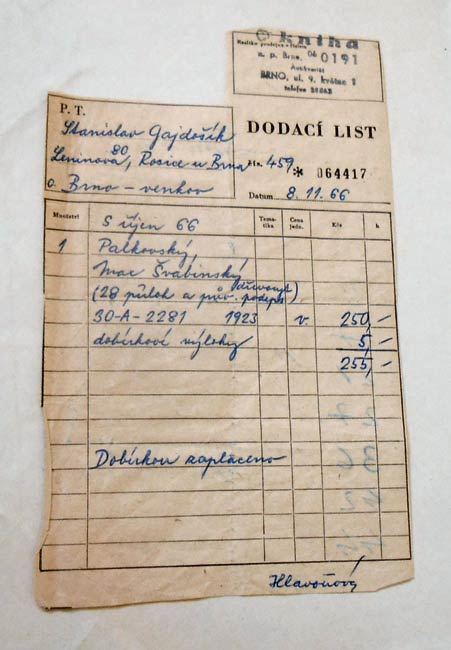 kniha
n. p. Brno, 06 0191
Antikvariát
BRNO, ul. 9. května 1
telefon
P. T.
Stanislav Gajdošík
Leninova 80, Rosice u Brna
o. Brno - venkov
DODACÍ LIST
čís. 459 * 064417
Datum 8. 11. 66
Množství Tematika Cena jedn. Kčs h
S říjen 66
1 Palkovský,
Max Švabinský
(28 příloh a pův. dřevoryt podeps)
30-A-2281 1923 v. 250,-
dobírkové výlohy 5,-
255,-
Dobírkou zaplaceno
Hlavoňová